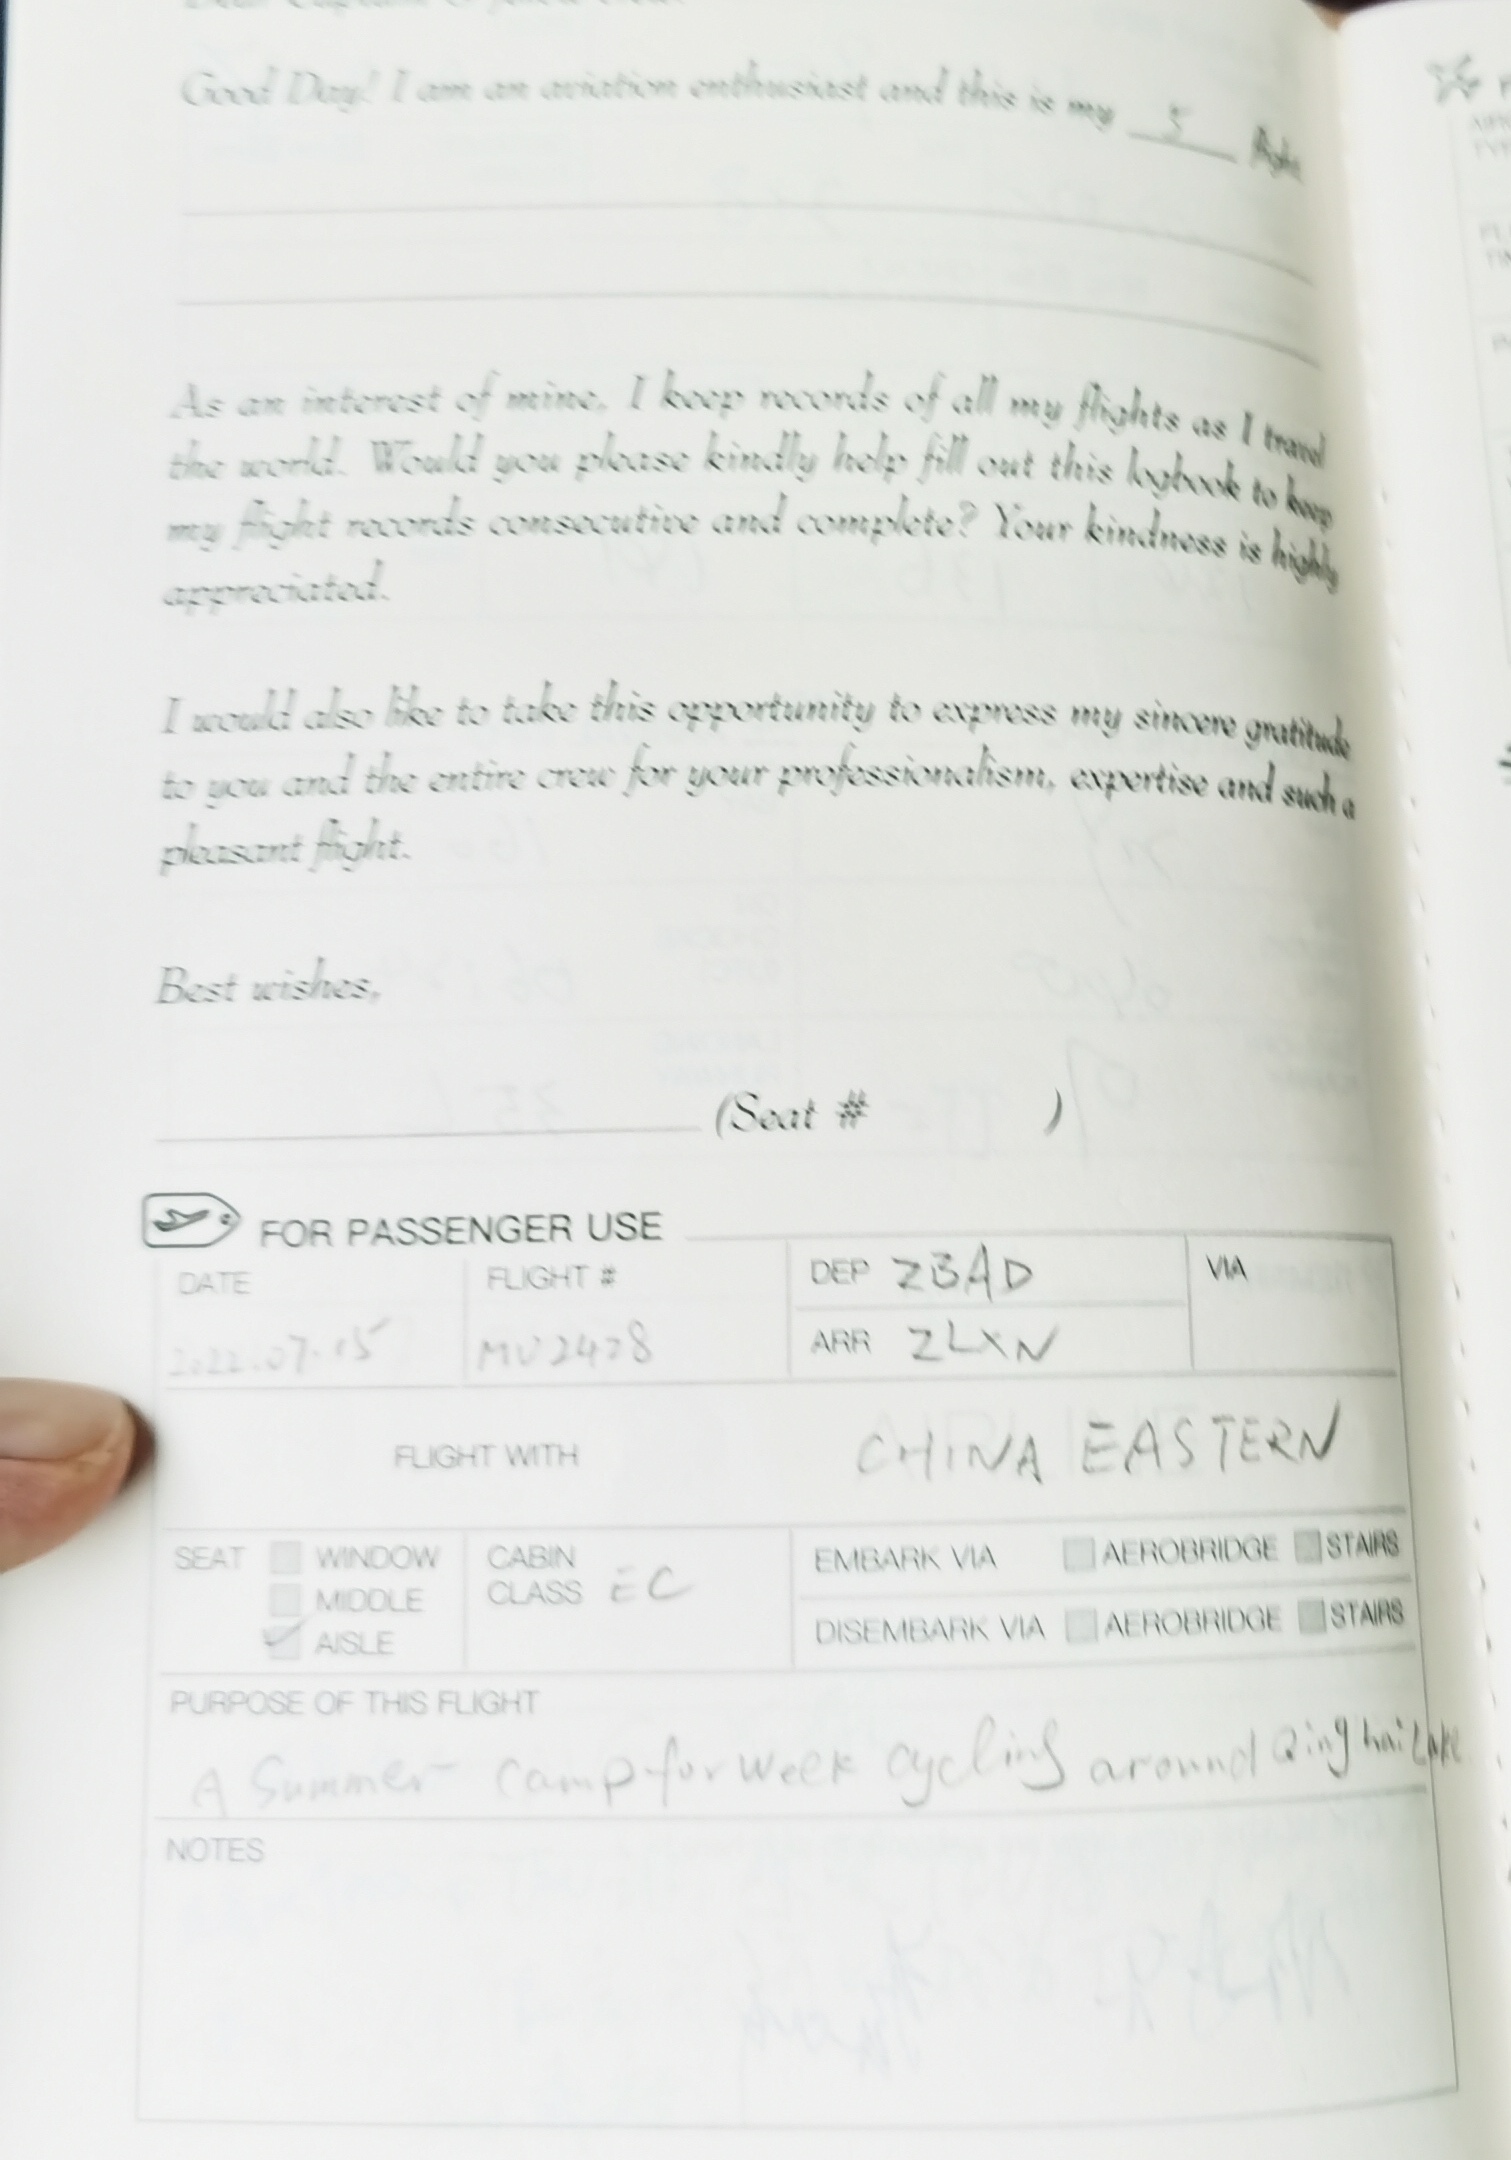 Good Day! I am an aviation enthusiast and this is my 5 flight
As an interest of mine, I keep records of all my flights as I travel
the world. Would you please kindly help fill out this logbook to keep
my flight records consecutive and complete? Your kindness is highly
appreciated.
I would also like to take this opportunity to express my sincere gratitude
to you and the entire crew for your professionalism, expertise and such a
pleasant flight.
Best wishes,
(Seat # )
FOR PASSENGER USE
DATE 2022.07.15
FLIGHT # MU2428
DEP ZBAD
ARR ZLXN
VIA
FLIGHT WITH CHINA EASTERN
SEAT WINDOW
MIDDLE
AISLE
CABIN
CLASS EC
EMBARK VIA AEROBRIDGE STAIRS
DISEMBARK VIA AEROBRIDGE STAIRS
PURPOSE OF THIS FLIGHT
A Summer Camp for week cycling around Qinghai Lake
NOTES